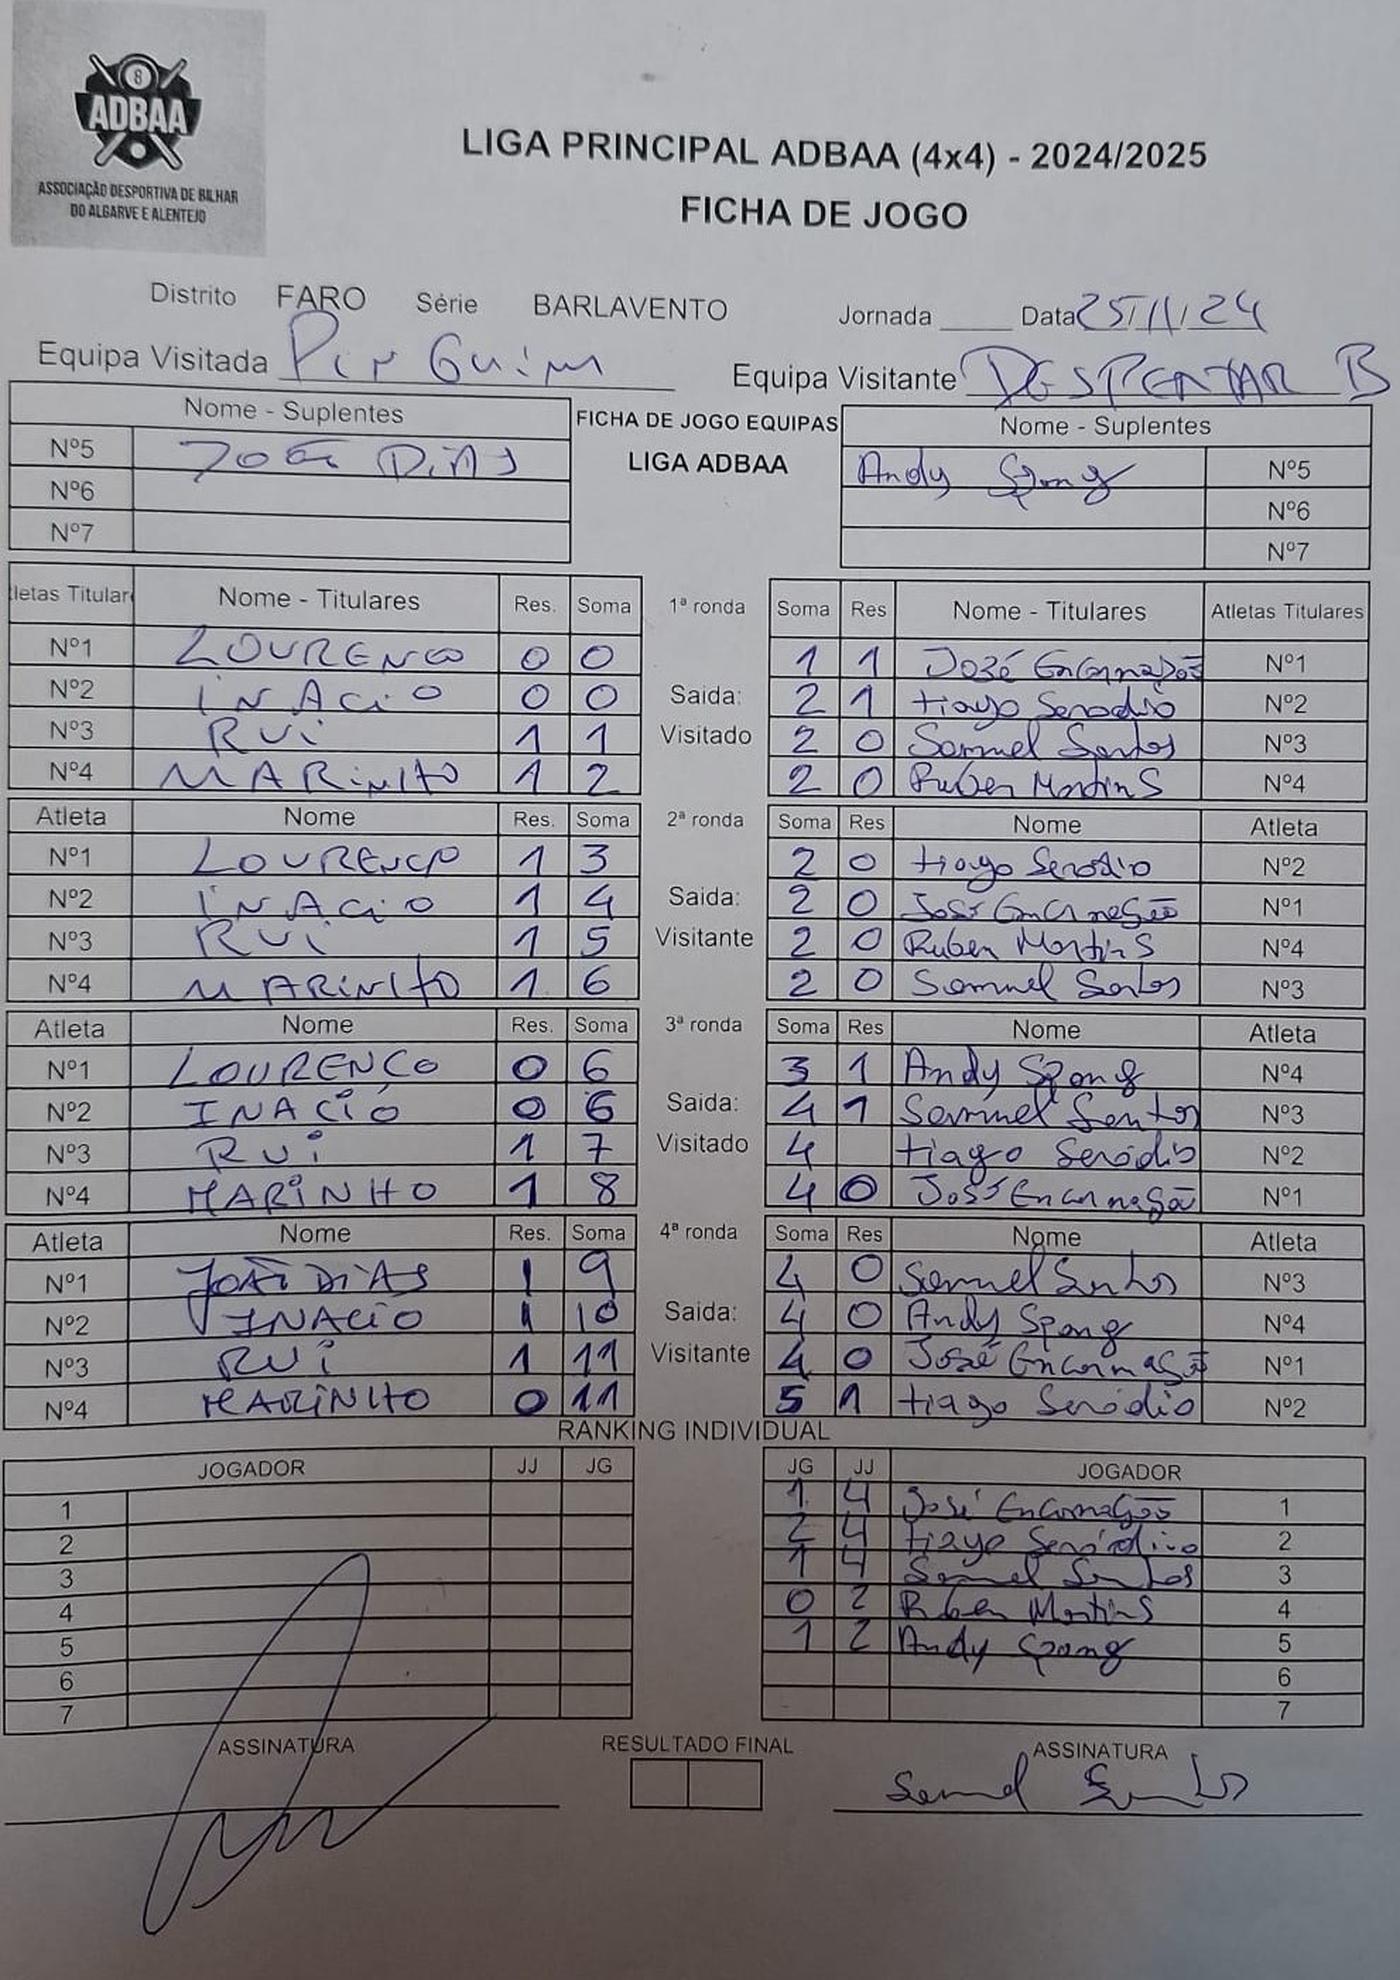 8
ADBAA
ASSOCIAÇÃO DESPORTIVA DE BILHAR
DO ALGARVE E ALENTEJO
LIGA PRINCIPAL ADBAA (4x4) - 2024/2025
FICHA DE JOGO
Distrito FARO Série BARLAVENTO Jornada ____ Data 25/11/24
Equipa Visitada PinGuim Equipa Visitante DESPERTAR B
Nome - Suplentes FICHA DE JOGO EQUIPAS Nome - Suplentes
Nº5 JOÃO DIAS LIGA ADBAA Andy Spong Nº5
Nº6 Nº6
Nº7 Nº7
letas Titular Nome - Titulares Res. Soma 1ª ronda Soma Res Nome - Titulares Atletas Titulares
Nº1 LOURENCO 0 0 1 1 José Encarnação Nº1
Nº2 iNACiO 0 0 Saida: 2 1 tiago Serodio Nº2
Nº3 RUi 1 1 Visitado 2 0 Samuel Santos Nº3
Nº4 MARiNHO 1 2 2 0 Ruben Martins Nº4
Atleta Nome Res. Soma 2ª ronda Soma Res Nome Atleta
Nº1 LOURENÇO 1 3 2 0 tiago Serodio Nº2
Nº2 iNACiO 1 4 Saida: 2 0 José Encarnação Nº1
Nº3 RUi 1 5 Visitante 2 0 Ruben Martins Nº4
Nº4 MARiNHO 1 6 2 0 Samuel Santos Nº3
Atleta Nome Res. Soma 3ª ronda Soma Res Nome Atleta
Nº1 LOURENÇO 0 6 3 1 Andy Spong Nº4
Nº2 INACiO 0 6 Saida: 4 1 Samuel Santos Nº3
Nº3 RUi 1 7 Visitado 4 tiago Seródio Nº2
Nº4 MARiNHO 1 8 4 0 José Encarnação Nº1
Atleta Nome Res. Soma 4ª ronda Soma Res Nome Atleta
Nº1 JOÃO DiAS 1 9 4 0 Samuel Santos Nº3
Nº2 INACiO 1 10 Saida: 4 0 Andy Spong Nº4
Nº3 RUi 1 11 Visitante 4 0 José Encarnação Nº1
Nº4 MARiNHO 0 11 5 1 tiago Seródio Nº2
RANKING INDIVIDUAL
JOGADOR JJ JG JG JJ JOGADOR
1 1 4 José Encarnação 1
2 2 4 tiago Seródio 2
3 1 4 Samuel Santos 3
4 0 2 Ruben Martins 4
5 1 2 Andy Spong 5
6 6
7 7
ASSINATURA RESULTADO FINAL ASSINATURA
Samuel Santos